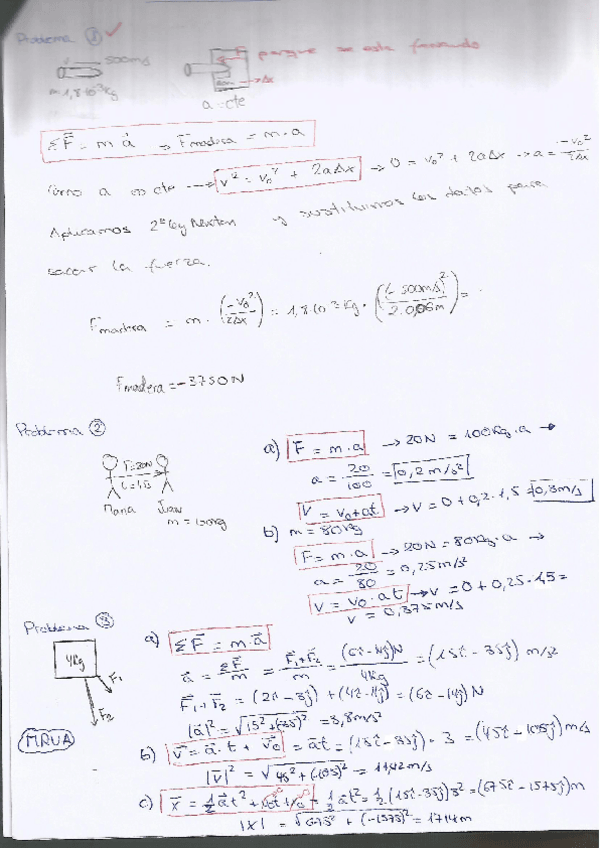 Problema ①
500m/s
m = 1,8·10⁻³ kg
F porque se esta frenando
Δx
a = cte
ΣF = m a → Fmadera = m·a
Como a es cte → v² = v₀² + 2aΔx → 0 = v₀² + 2aΔx → a = -v₀²/2Δx
Aplicamos 2ª ley Newton y sustituimos los datos para
sacar la fuerza.
Fmadera = m·(-v₀²/2Δx) = 1,8·10⁻³ kg · ((-500m/s)²/2·0,06m) =
Fmadera = -3750N
Problema ②
F=20N
t=1,5
Maria Juan
m = 100kg
a) F = m·a → 20N = 100kg·a →
a = 20/100 = 0,2 m/s²
V = v₀+at → V = 0+0,2·1,5 = 0,3m/s
b) m = 80kg
F = m·a → 20N = 80kg·a →
a = 20/80 = 0,25m/s²
V = v₀·at → v = 0 + 0,25·1,5 =
v = 0,375m/s
Problema ③
4kg
F₁
F₂
MRUA
a) ΣF = m·a
a = ΣF/m = F₁+F₂/m = (6i-14j)N/4kg = (1,5i - 3,5j) m/s²
F₁+F₂ = (2i - 3j) + (4i - 11j) = (6i - 14j) N
|a|² = √1,5²+(-3,5)² = 3,8m/s²
b) v = a·t + v₀ = at = (1,5i - 3,5j)·3 = (4,5i - 10,5j) m/s
|v|² = √4,5² + (-10,5)² = 11,42 m/s
c) x = 1/2 at² + v₀t + r₀ = 1/2 at² = 1/2·(1,5i-3,5j)3² = (6,75i - 15,75j)m
|x| = √6,75² + (-15,75)² = 17,14m